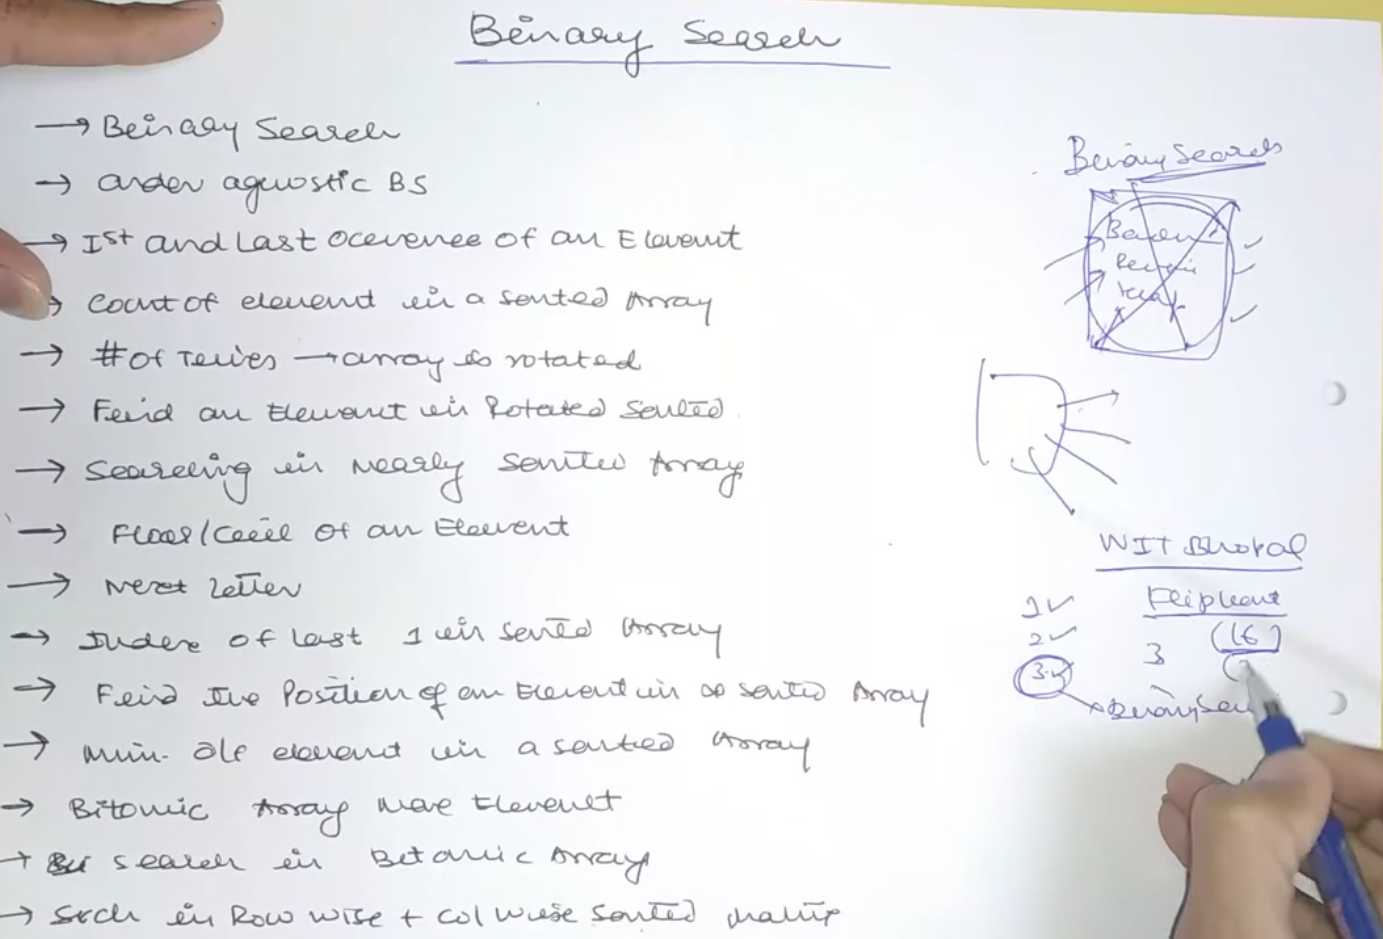 Binary Search
→ Binary Search
→ order agnostic BS
→ Ist and Last Occurence of an Element
→ Count of element in a sorted Array
→ # of Times → array is rotated
→ Find an Element in Rotated Sorted
→ Searching in Nearly Sorted Array
→ Floor/Ceil of an Element
→ Next Letter
→ Index of Last 1 in Sorted Array
→ Find the Position of an Element in ∞ sorted Array
→ Min. Diff element in a sorted Array
→ Bitonic Array Max Element
→ search in Bitonic Array
→ Srch in Row wise + Col wise Sorted matrix
Binary Search
WIT Bhopal
Flipkart
1✓
2✓
3✓
3
(16)
Binary Sea